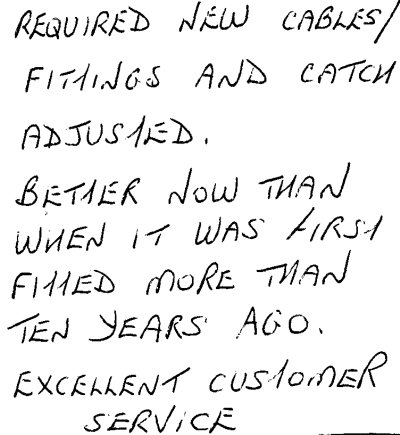 REQUIRED NEW CABLES/
FITTINGS AND CATCH
ADJUSTED.
BETTER NOW THAN
WHEN IT WAS FIRST
FITTED MORE THAN
TEN YEARS AGO.
EXCELLENT CUSTOMER
SERVICE